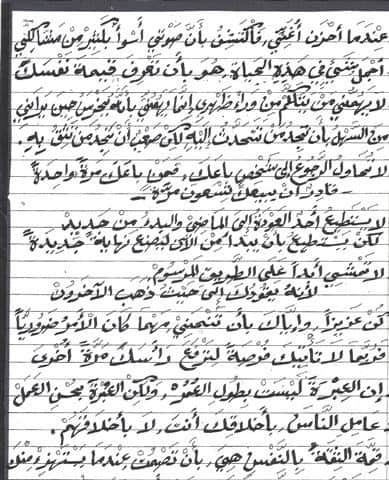 عندما أحزن أغني, فأكتشف بأن صوتي أسوأ بكثير من مشاكلي
أجمل شيء في هذه الحياة هو بأن تعرف قيمة نفسك
لا يهمني من يتكلم من وراء ظهري إنما يهمني بأنه يخرس حين يراني
من السهل بأن تجد من تتحدث إليه لكن صعب أن تجد من تثق به.
لا تحاول الرجوع إلى شخص باعك, فمن باعك مرة واحدة
قادر أن يبيعك تسعون مرة
لا يستطيع أحد العودة إلى الماضي والبدء من جديد
لكن يستطيع بأن يبدأ من الآن ليصنع نهاية جديدة
لا تمشي أبدا على الطريق المرسوم
لأنه يقودك إلى حيث ذهب الآخرون
كن عزيزا, وإياك بأن تنحني مهما كان الأمر ضروريا
فربما لا تأتيك فرصة لترفع رأسك مرة أخرى
إن العبرة ليست بطول العمر, ولكن العبرة بحسن العمل
عامل الناس بأخلاقك أنت, لا بأخلاقهم.
قمة الثقة بالنفس هي, بأن تصمت عندما يستهزء منك